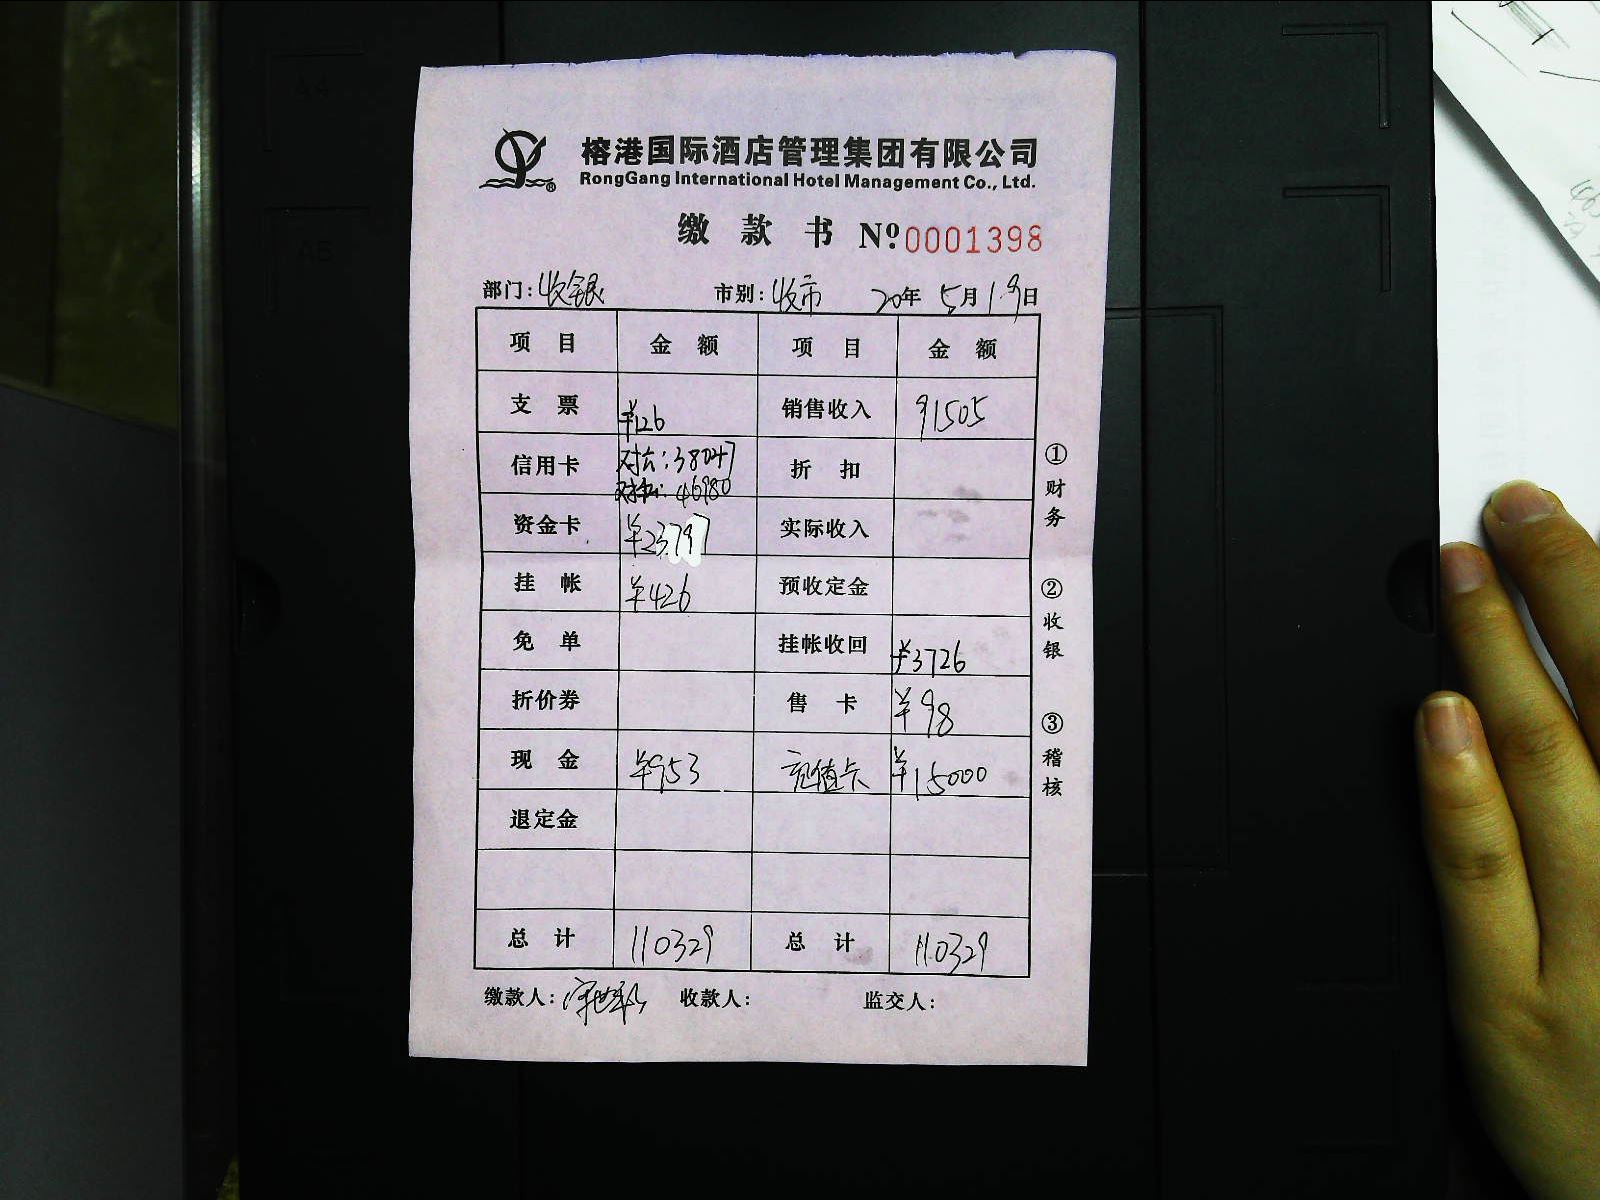 榕港国际酒店管理集团有限公司
RongGang International Hotel Management Co., Ltd.
缴款书 Nº 0001398
部门:收银 市别:收市 20年5月19日
项目 金额 项目 金额
支票 ¥126 销售收入 91505
信用卡 对公:38047 折扣
对私:46980
资金卡 ¥23797 实际收入
挂帐 ¥426 预收定金
免单 挂帐收回 ¥3726
折价券 售卡 ¥98
现金 ¥953 充值卡 ¥15000
退定金
总计 110329 总计 110329
缴款人: 收款人: 监交人:
①财务
②收银
③稽核
A4
A5